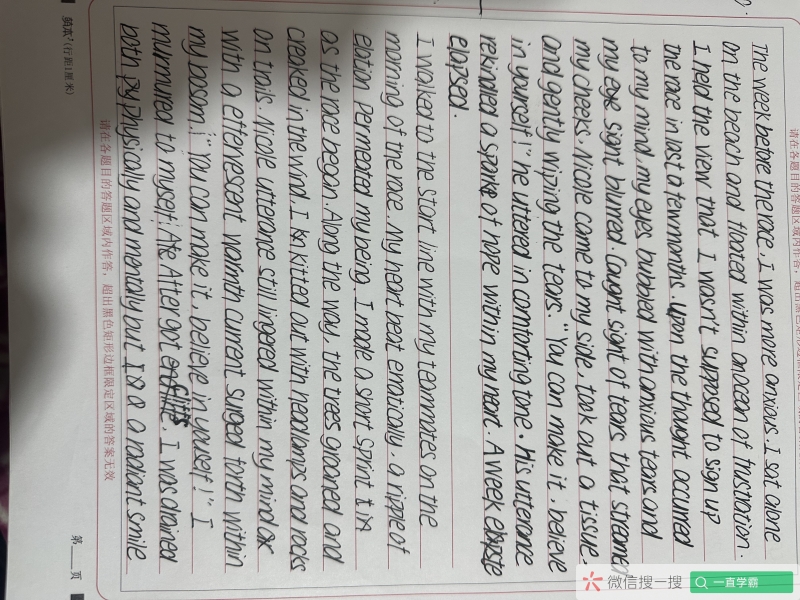 The week before the race, I was more anxious. I sat alone
on the beach and floated within anocean of frustration.
I held the view that I wasn't supposed to sign up
the race in last a few months. upon the thought occurred
to my mind, my eyes bubbled with anxious tears and
my eye sight blurred. Caught sight of tears that streamed
my cheeks, Nicole came to my side, took out a tissue
and gently wiping the tears. "You can make it, believe
in yourself!" he uttered in comforting tone. His utterance
rekindled a spark of hope within my heart. A week
elapsed.
I walked to the start line with my teammates on the
morning of the race. My heart beat ematically, a ripple of
elation permented my being. I made a short sprint in
as the race began. Along the way, the trees groaned and
creaked in the wind. I kitted out with headlamps and rocks
on trails. Nicole utterance still lingered within my mind
with a effervescent warmth current surged forth within
my bosom. "You can make it, believe in youself!" I
murmured to myself; After cliffs, I was drained
both physically and mentally but a radiant smile
请在各题目的答题区域内作答,超出黑色矩形边框限定区域的答案无效
第 页
(行距1厘米)
微信搜一搜
一直学霸